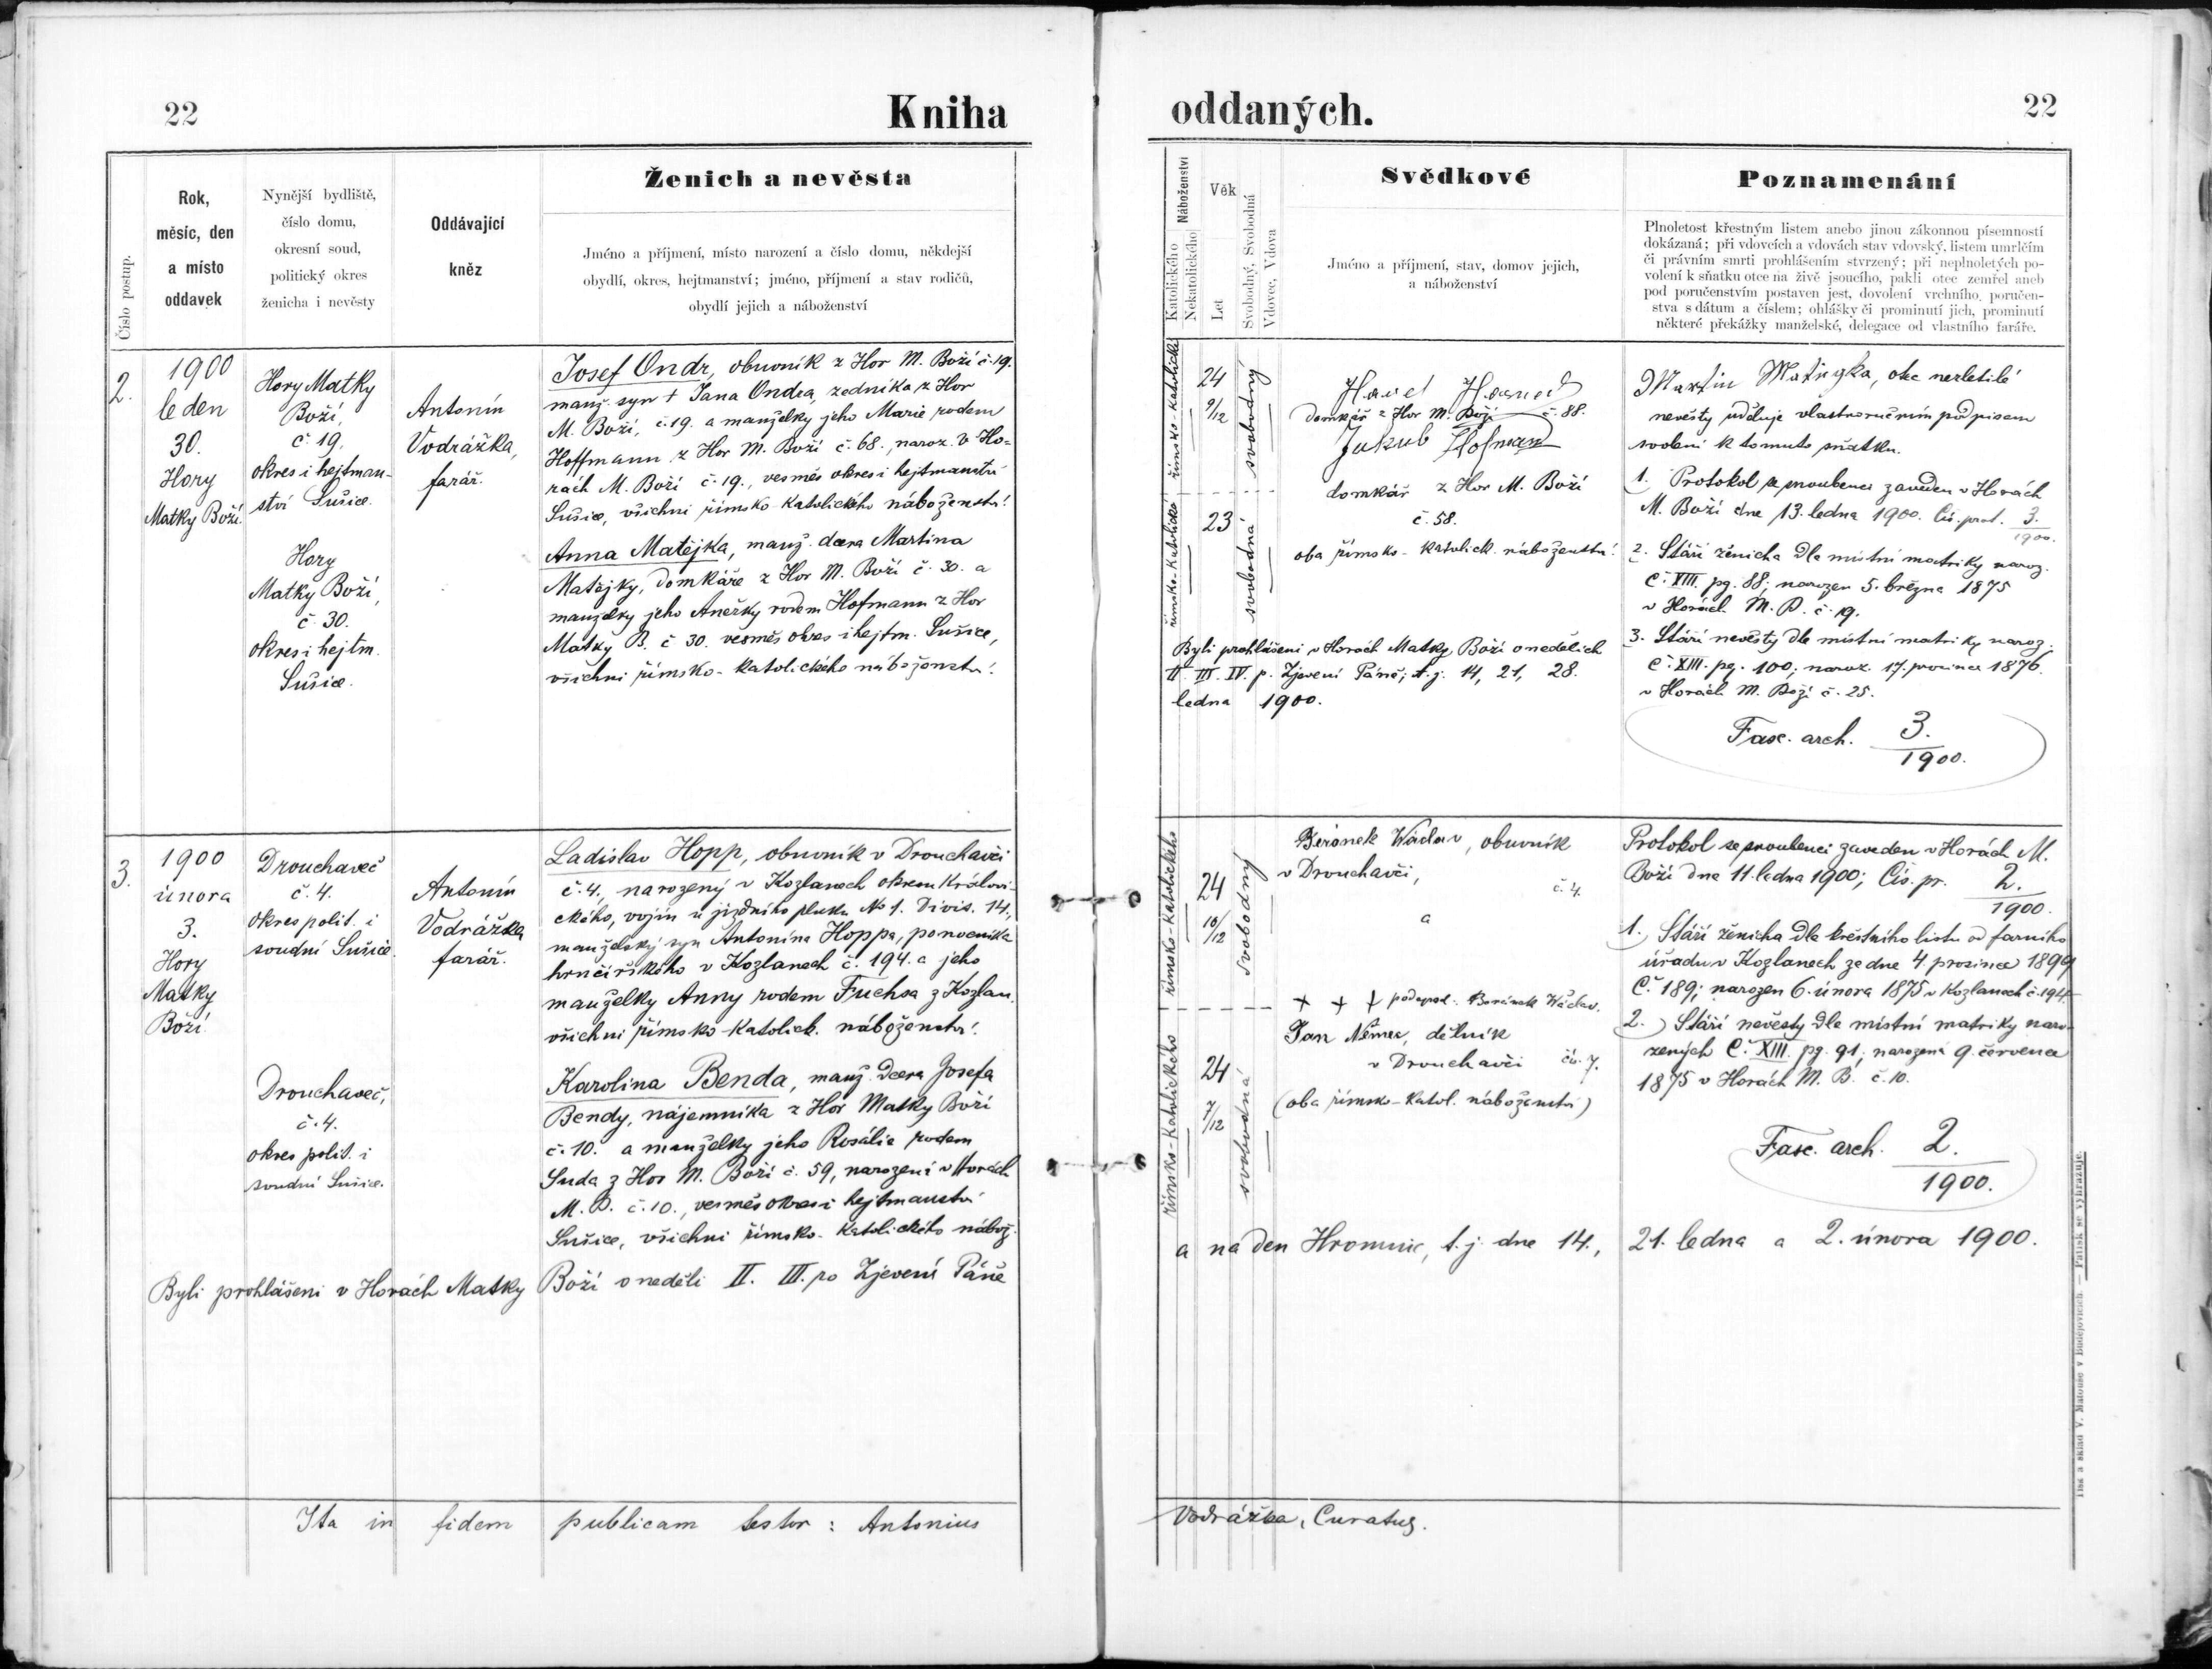 22
Kniha
oddaných.
22
Číslo postup.
Rok,
měsíc, den
a místo
oddavek
Nynější bydliště,
číslo domu,
okresní soud,
politický okres
ženicha i nevěsty
Oddávající
kněz
Ženich a nevěsta
Jméno a příjmení, místo narození a číslo domu, někdejší
obydlí, okres, hejtmanství; jméno, příjmení a stav rodičů,
obydlí jejich a náboženství
Náboženství
Katolického
Nekatolického
Věk
Let
Svobodný, Svobodná
Vdovec, Vdova
Svědkové
Jméno a příjmení, stav, domov jejich,
a náboženství
Poznamenání
Plnoletost křestným listem anebo jinou zákonnou písemností
dokázaná; při vdovcích a vdovách stav vdovský, listem umrlčím
či právním smrti prohlášením stvrzený; při neplnoletých po-
volení k sňatku otce na živě jsoucího, pakli otec zemřel aneb
pod poručenstvím postaven jest, dovolení vrchního poručen-
stva s dátum a číslem; ohlášky či prominutí jich, prominutí
některé překážky manželské, delegace od vlastního faráře.
2.
1900
leden
30.
Hory
Matky Boží.
Hory Matky
Boží,
č. 19.
okres i hejtman-
ství Sušice.
Hory
Matky Boží,
č. 30.
okres i hejtm.
Sušice.
Antonín
Vodrážka,
farář.
Josef Ondr, obuvník z Hor M. Boží č. 19.
manž. syn † Jana Ondra, zedníka z Hor
M. Boží, č. 19. a manželky jeho Marie rodem
Hoffmann z Hor M. Boží č. 68., naroz. v Ho-
rách M. Boží č. 19., vesměs okres i hejtmanství
Sušice, všichni římsko-katolického náboženství.
Anna Matějka, manž. dcera Martina
Matějky, domkáře z Hor M. Boží č. 30. a
manželky jeho Anežky rodem Hofmann z Hor
Matky B. č 30. vesměs okres i hejtm. Sušice,
všichni římsko-katolického náboženství.
římsko-katolické
24
9/12
svobodný
římsko-katolické
23
svobodná
Domkář z Hor M. Boží č. 88.
Jakub Hofman
domkář z Hor M. Boží
č. 58.
oba římsko-katolick. náboženství.
Byli prohlášeni v Horách Matky Boží o nedělích
II. III. IV. p. Zjevení Páně; t. j. 14, 21, 28.
ledna 1900.
Martin Matějka, otec nezletilé
nevěsty uděluje vlastnoručním podpisem
svolení k tomuto sňatku.
1. Protokol se snoubenci zaveden v Horách
M. Boží dne 13. ledna 1900. Čís. prot. 3./1900.
2. Stáří ženicha dle místní matriky naroz.
Č. XIII. pg. 88; narozen 5. března 1875
v Horách M. B. č. 19.
3. Stáří nevěsty dle místní matriky naroz.
Č. XIII. pg. 100; naroz. 17. prosince 1876.
v Horách M. Boží č. 25.
Fasc. arch. 3./1900.
3.
1900
února
3.
Hory
Matky
Boží.
Drouchaveč
č. 4.
okres polit. i
soudní Sušice.
Drouchaveč,
č. 4.
okres polit. i
soudní Sušice.
Antonín
Vodrážka
farář.
Ladislav Hopp, obuvník v Drouchavči
č. 4., narozený v Kozlanech okresu Královi-
ckého, vojín u jízdního pluku No 1. Divis. 14.,
manželský syn Antonína Hoppa, pomocníka
hrnčířského v Kozlanech č. 194. a jeho
manželky Anny rodem Fuchsa z Kozlan.
všichni římsko-katolick. náboženství.
Karolina Benda, manž. dcera Josefa
Bendy, nájemníka z Hor Matky Boží
č. 10. a manželky jeho Rosálie rodem
Suda z Hor M. Boží č. 59, narozená v Horách
M. B. č. 10., vesměs okres i hejtmanství
Sušice, všichni římsko-katolického nábož.
Byli prohlášeni v Horách Matky Boží o neděli II. III. po Zjevení Páně
a na den Hromnic, t. j. dne 14., 21. ledna a 2. února 1900.
římsko-katolického
24
10/12
svobodný
římsko-katolického
24
7/12
svobodná
Beránek Wáclav, obuvník
v Drouchavči, č. 4.
a
+ + + podepsal: Beránek Wáclav.
Jan Němec, dělník
v Drouchavči čís. 7.
(oba římsko-katol. náboženství)
Protokol se snoubenci zaveden v Horách M.
Boží dne 11. ledna 1900; Čís. pr. 2./1900.
1. Stáří ženicha dle křestního listu od farního
úřadu v Kozlanech ze dne 4 prosince 1899
Č. 189; narozen 6. února 1875 v Kozlanech č. 194
2.) Stáří nevěsty dle místní matriky naro-
zených Č. XIII. pg. 91; narozená 9. července
1875 v Horách M. B. č. 10.
Fasc. arch. 2./1900.
Ita in fidem publicam testor: Antonius Vodrážka, Curatus.
Tisk a sklad V. Matouše v Budějovicích. — Patisk se vyhrazuje.